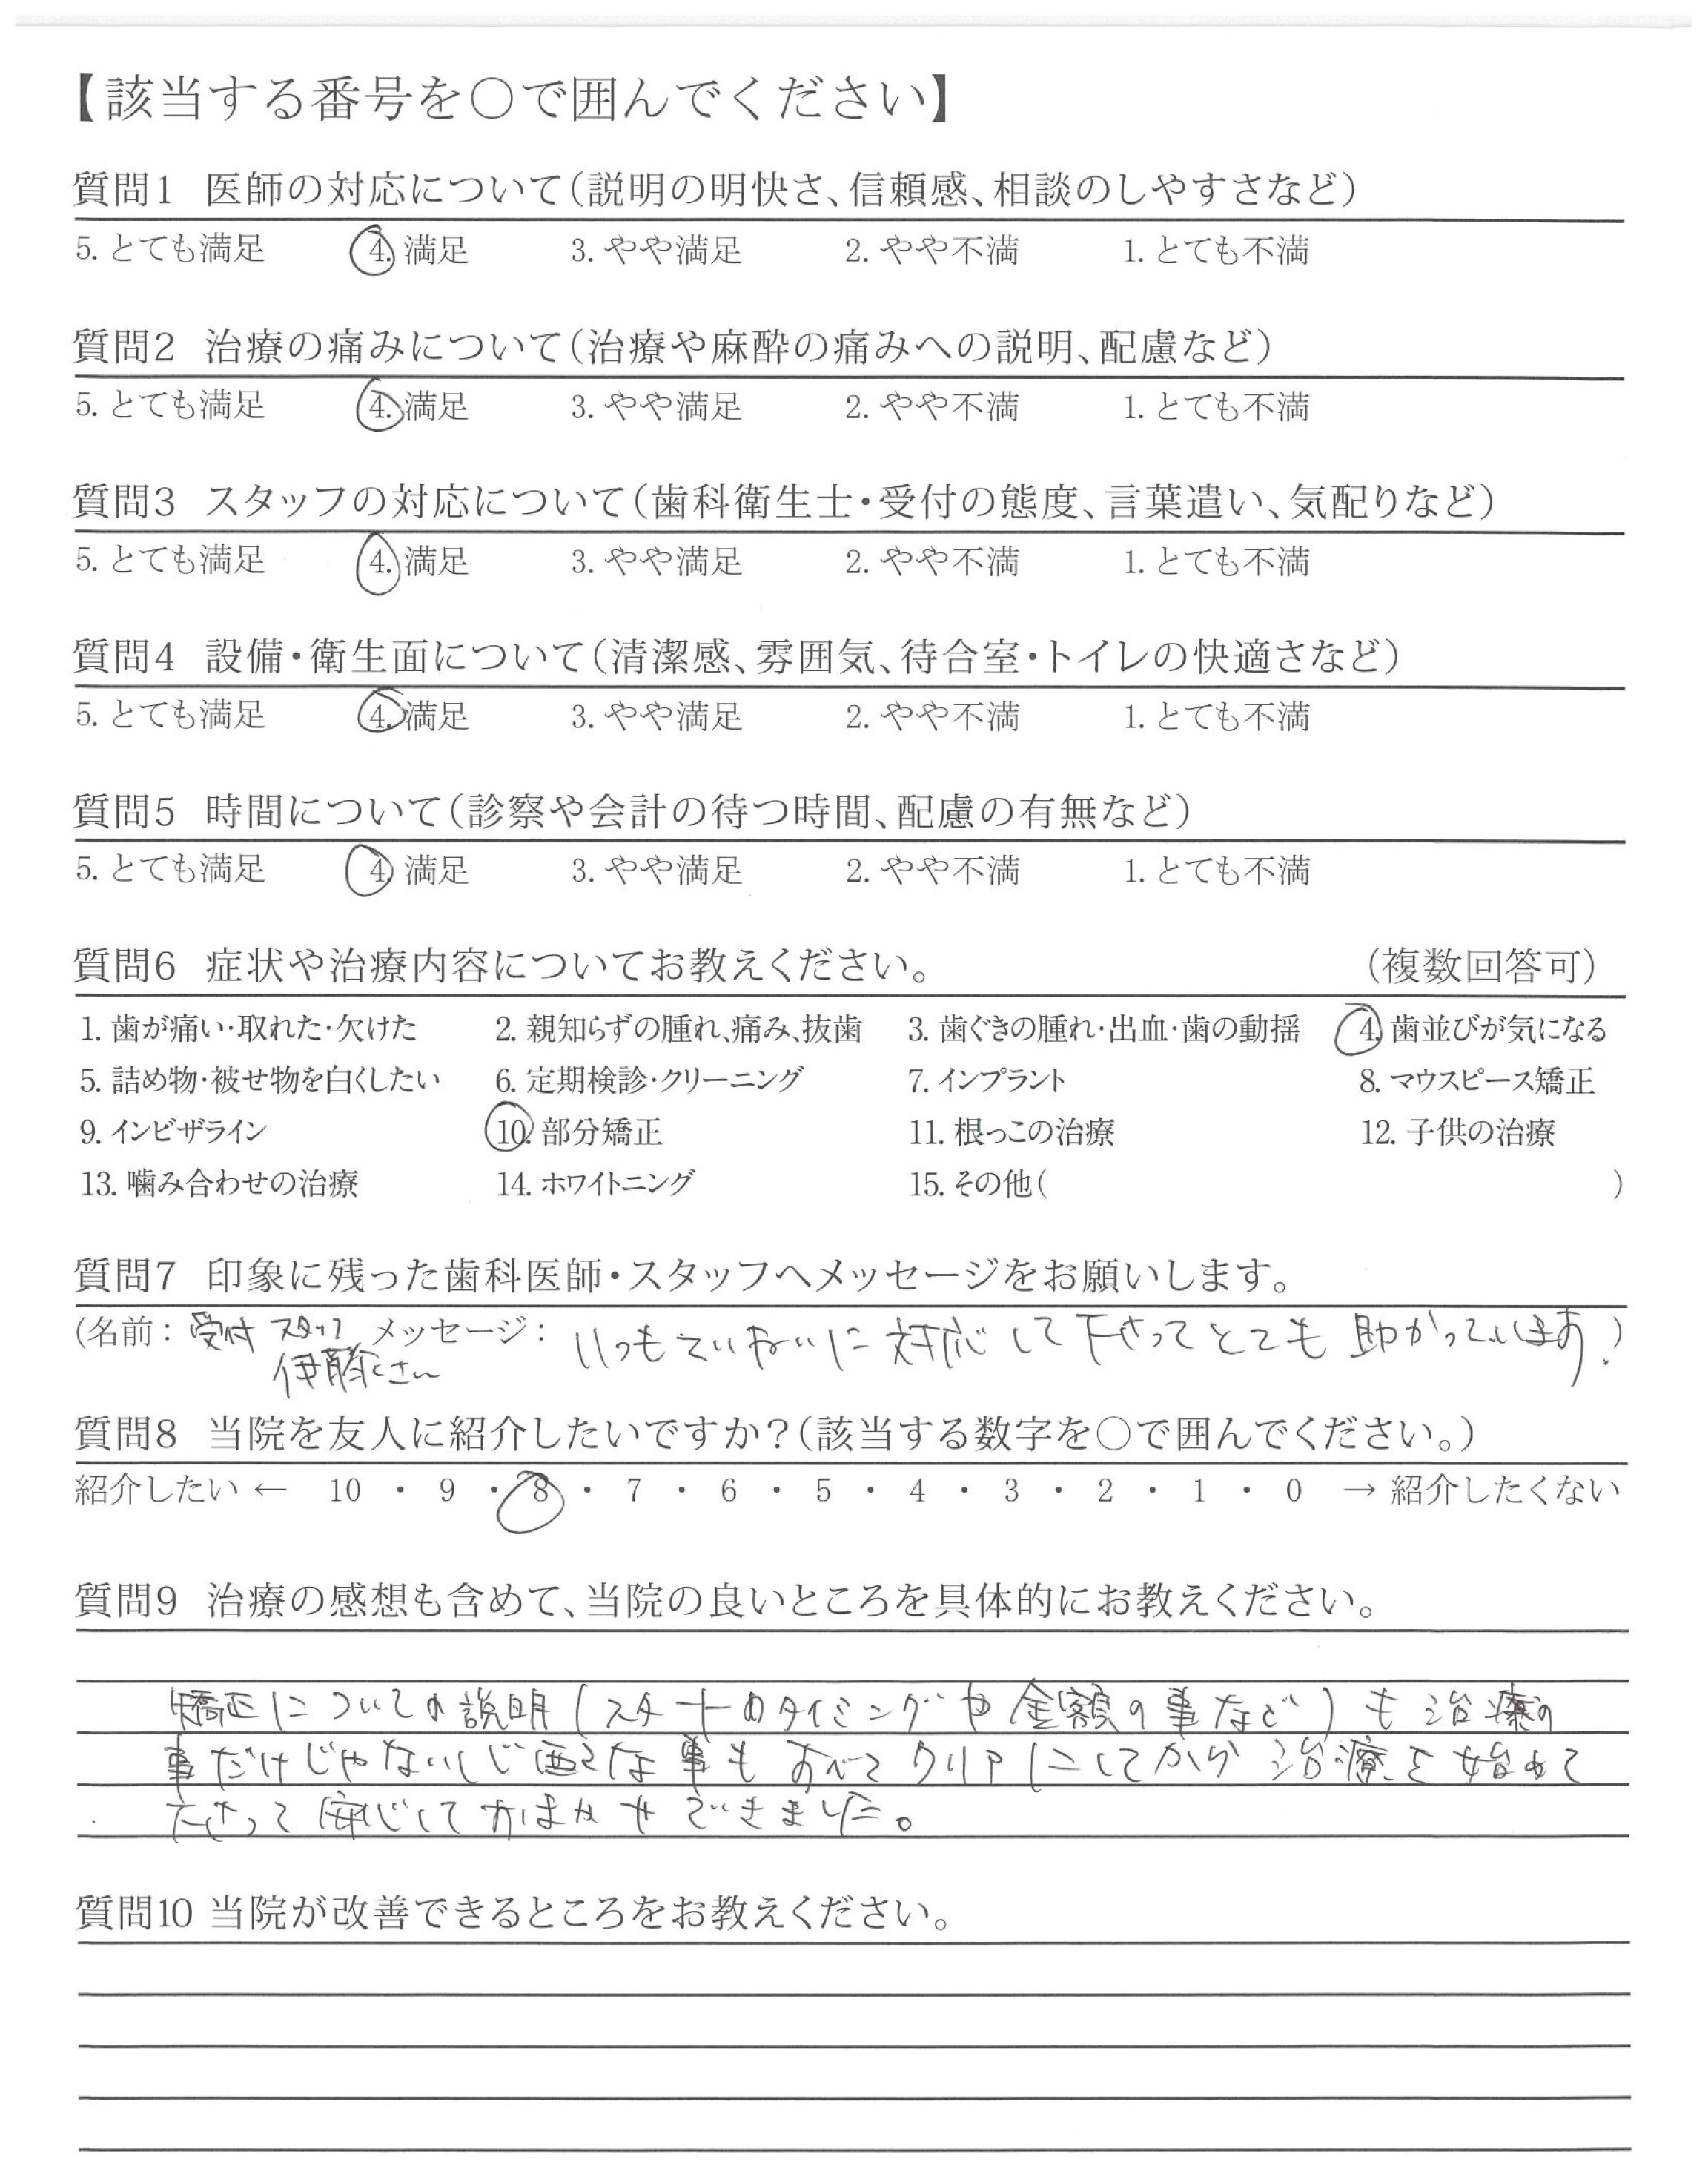 【該当する番号を○で囲んでください】
質問1 医師の対応について（説明の明快さ、信頼感、相談のしやすさなど）
5. とても満足 4. 満足 3. やや満足 2. やや不満 1. とても不満
質問2 治療の痛みについて（治療や麻酔の痛みへの説明、配慮など）
5. とても満足 4. 満足 3. やや満足 2. やや不満 1. とても不満
質問3 スタッフの対応について（歯科衛生士・受付の態度、言葉遣い、気配りなど）
5. とても満足 4. 満足 3. やや満足 2. やや不満 1. とても不満
質問4 設備・衛生面について（清潔感、雰囲気、待合室・トイレの快適さなど）
5. とても満足 4. 満足 3. やや満足 2. やや不満 1. とても不満
質問5 時間について（診察や会計の待つ時間、配慮の有無など）
5. とても満足 4. 満足 3. やや満足 2. やや不満 1. とても不満
質問6 症状や治療内容についてお教えください。 （複数回答可）
1. 歯が痛い・取れた・欠けた 2. 親知らずの腫れ、痛み、抜歯 3. 歯ぐきの腫れ・出血・歯の動揺 4. 歯並びが気になる
5. 詰め物・被せ物を白くしたい 6. 定期検診・クリーニング 7. インプラント 8. マウスピース矯正
9. インビザライン 10. 部分矯正 11. 根っこの治療 12. 子供の治療
13. 噛み合わせの治療 14. ホワイトニング 15. その他（ ）
質問7 印象に残った歯科医師・スタッフへメッセージをお願いします。
（名前：受付 スタッフ メッセージ： いつもていねいに対応して下さってとても助かっています。）
伊藤さん
質問8 当院を友人に紹介したいですか？（該当する数字を○で囲んでください。）
紹介したい ← 10 ・ 9 ・ 8 ・ 7 ・ 6 ・ 5 ・ 4 ・ 3 ・ 2 ・ 1 ・ 0 → 紹介したくない
質問9 治療の感想も含めて、当院の良いところを具体的にお教えください。
矯正についての説明（スタートのタイミングや金額の事など）も治療の
事だけじゃない心配な事もすべてクリアにしてから治療を始めて
下さって安心しておまかせできました。
質問10 当院が改善できるところをお教えください。